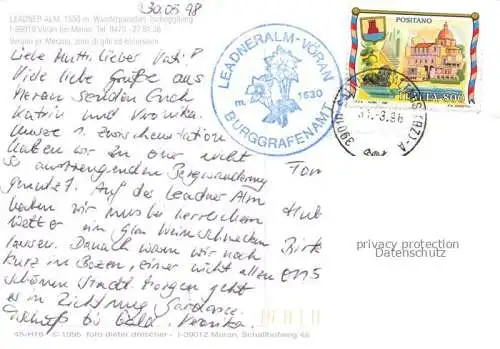 30.08.98
LEADNER-ALM, 1530 m. Wandergebiet Tschögglberg
I-39010 Vöran bei Meran, Tel. 0473 - 27 81 36
Verano pr. Merano, zona di gite ed escursioni
Liebe Mutti, lieber Vati!
Viele liebe Grüße aus
Meran senden Euch
Katrin und Veronika.
Unsere 1. Zwischenstation
haben wir zu einer nicht
so anstrengenden Bergwanderung
genutzt. Auf der Leadner Alm
haben wir uns bei herrlichem
Wetter ein Glas Wein schmecken
lassen. Danach waren wir noch
kurz in Bozen, einer nicht allen
schönen Stadt. Morgen geht
es in Richtung Gardasee.
Tschüß bis bald. Veronika.
LEADNERALM-VÖRAN
m. 1530
BURGGRAFENAMT
POSITANO
ITALIA 800
39010
(BZ)-A
31.8.98
Birk
0115
privacy protection
Datenschutz
45-H16 © 1995 foto dieter drescher - I-39012 Meran, Schallhofweg 46